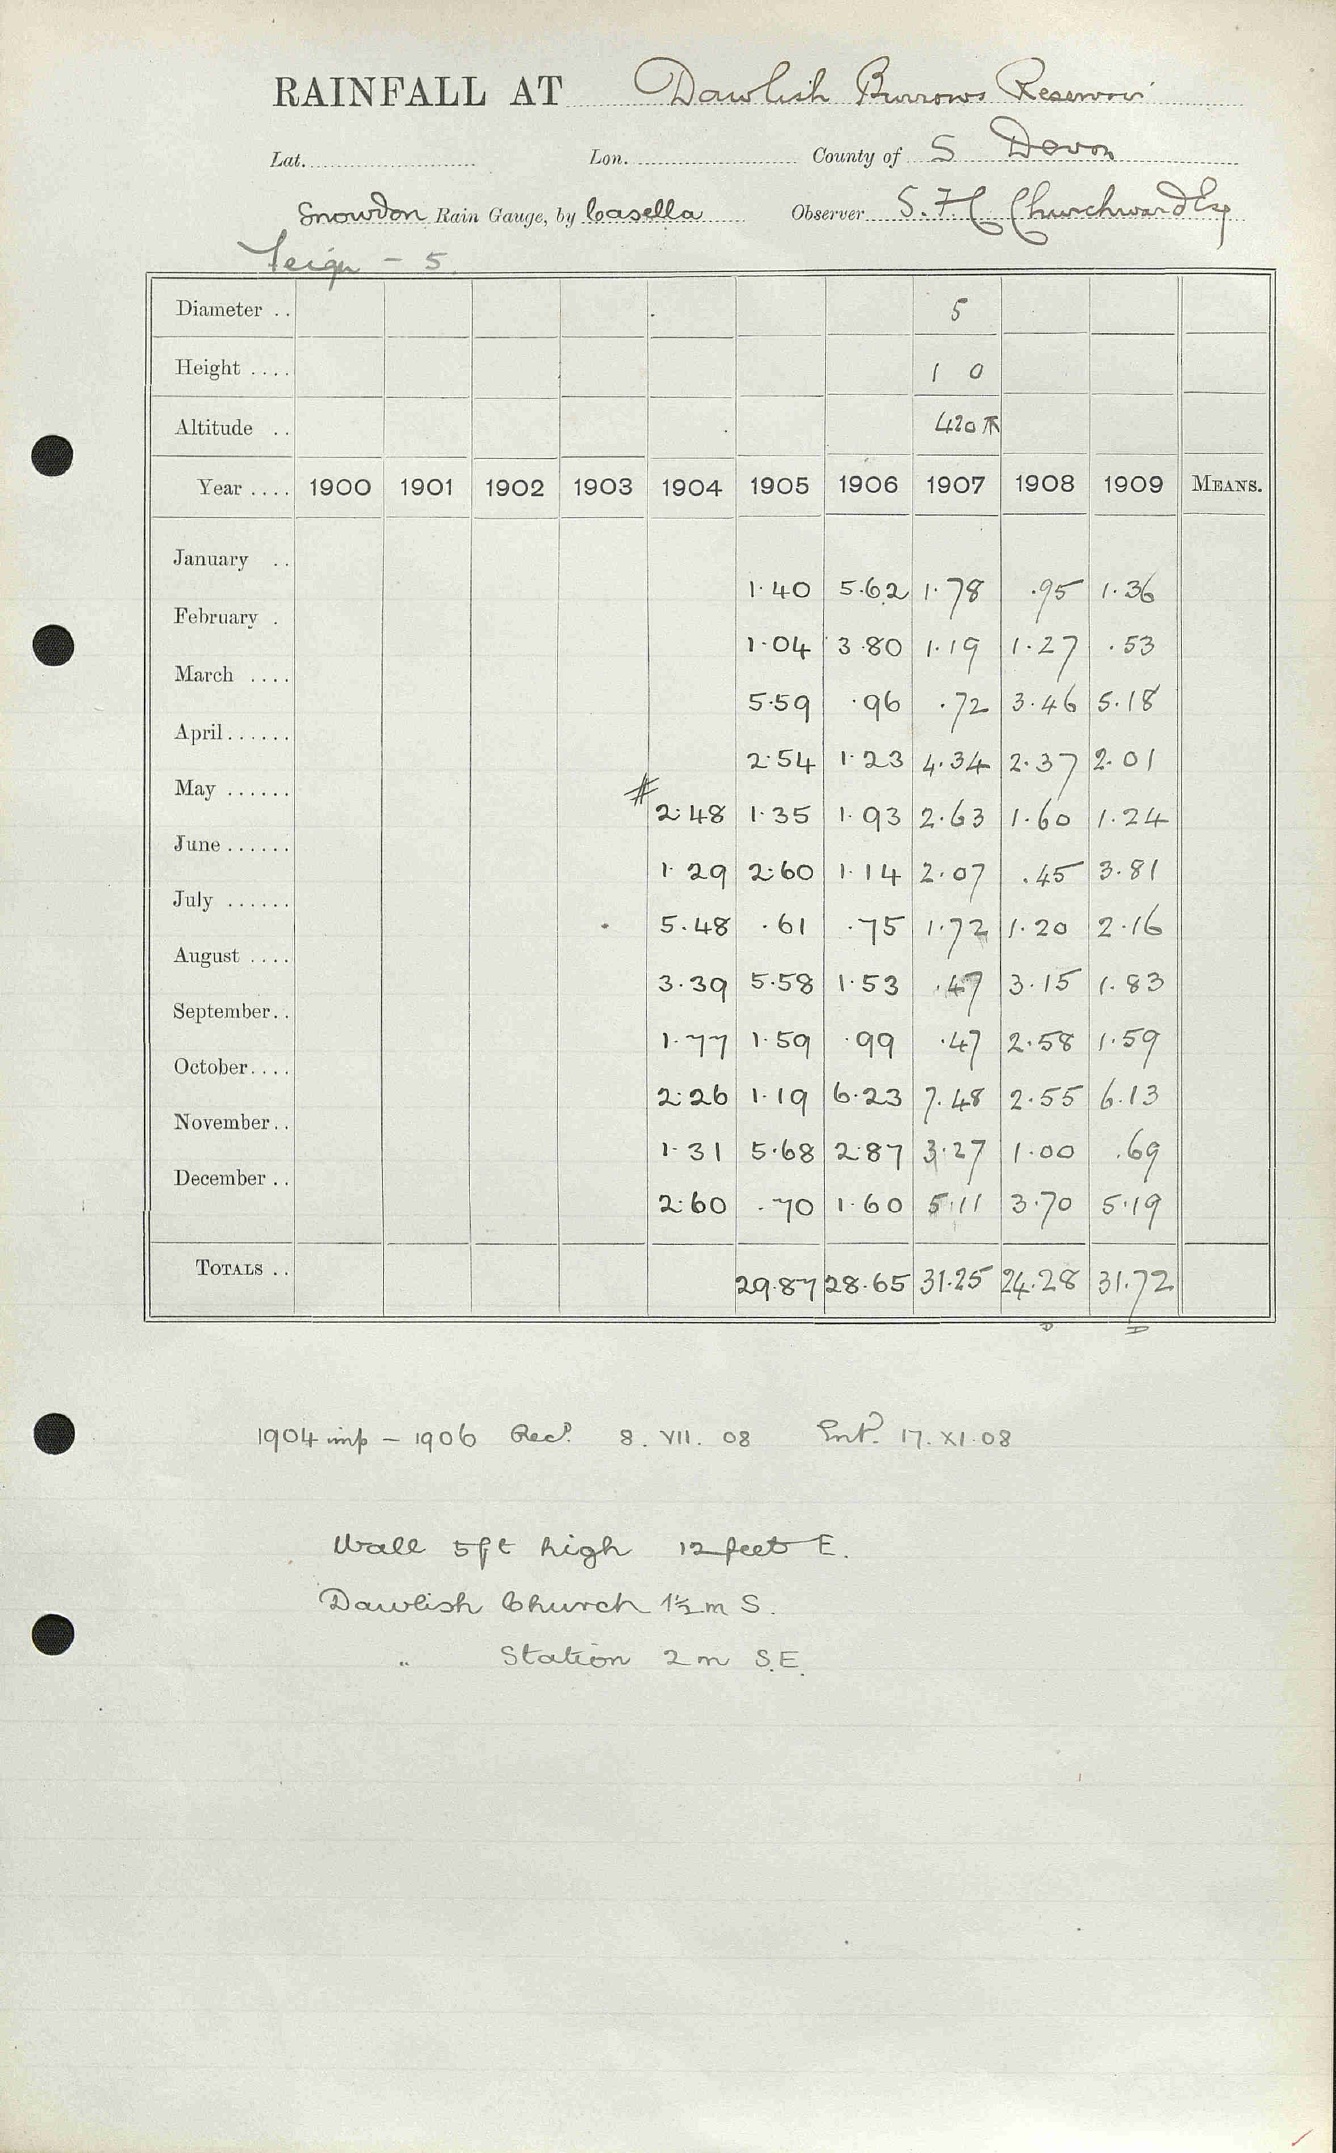 RAINFALL AT Dawlish Burrows Reservoir
Lat. Lon. County of S Devon
Snowdon Rain Gauge, by Casella Observer S. H. Churchward Esq
Teign - 5.
Diameter .. 5
Height .... 1 0
Altitude .. 420
Year .... 1900 1901 1902 1903 1904 1905 1906 1907 1908 1909 MEANS.
January .. 1.40 5.62 1.78 .95 1.36
February . 1.04 3.80 1.19 1.27 .53
March .... 5.59 .96 .72 3.46 5.18
April...... 2.54 1.23 4.34 2.37 2.01
May ...... # 2.48 1.35 1.93 2.63 1.60 1.24
June...... 1.29 2.60 1.14 2.07 .45 3.81
July ...... 5.48 .61 .75 1.72 1.20 2.16
August .... 3.39 5.58 1.53 .47 3.15 1.83
September.. 1.77 1.59 .99 .47 2.58 1.59
October.... 2.26 1.19 6.23 7.48 2.55 6.13
November.. 1.31 5.68 2.87 3.27 1.00 .69
December .. 2.60 .70 1.60 5.11 3.70 5.19
TOTALS .. 29.87 28.65 31.25 24.28 31.72
1904 imp - 1906 Recd. 8. VII. 08 Entd. 17. XI. 08
Wall 5ft high 12 feet E.
Dawlish Church 1½ m S.
" Station 2 m S.E.